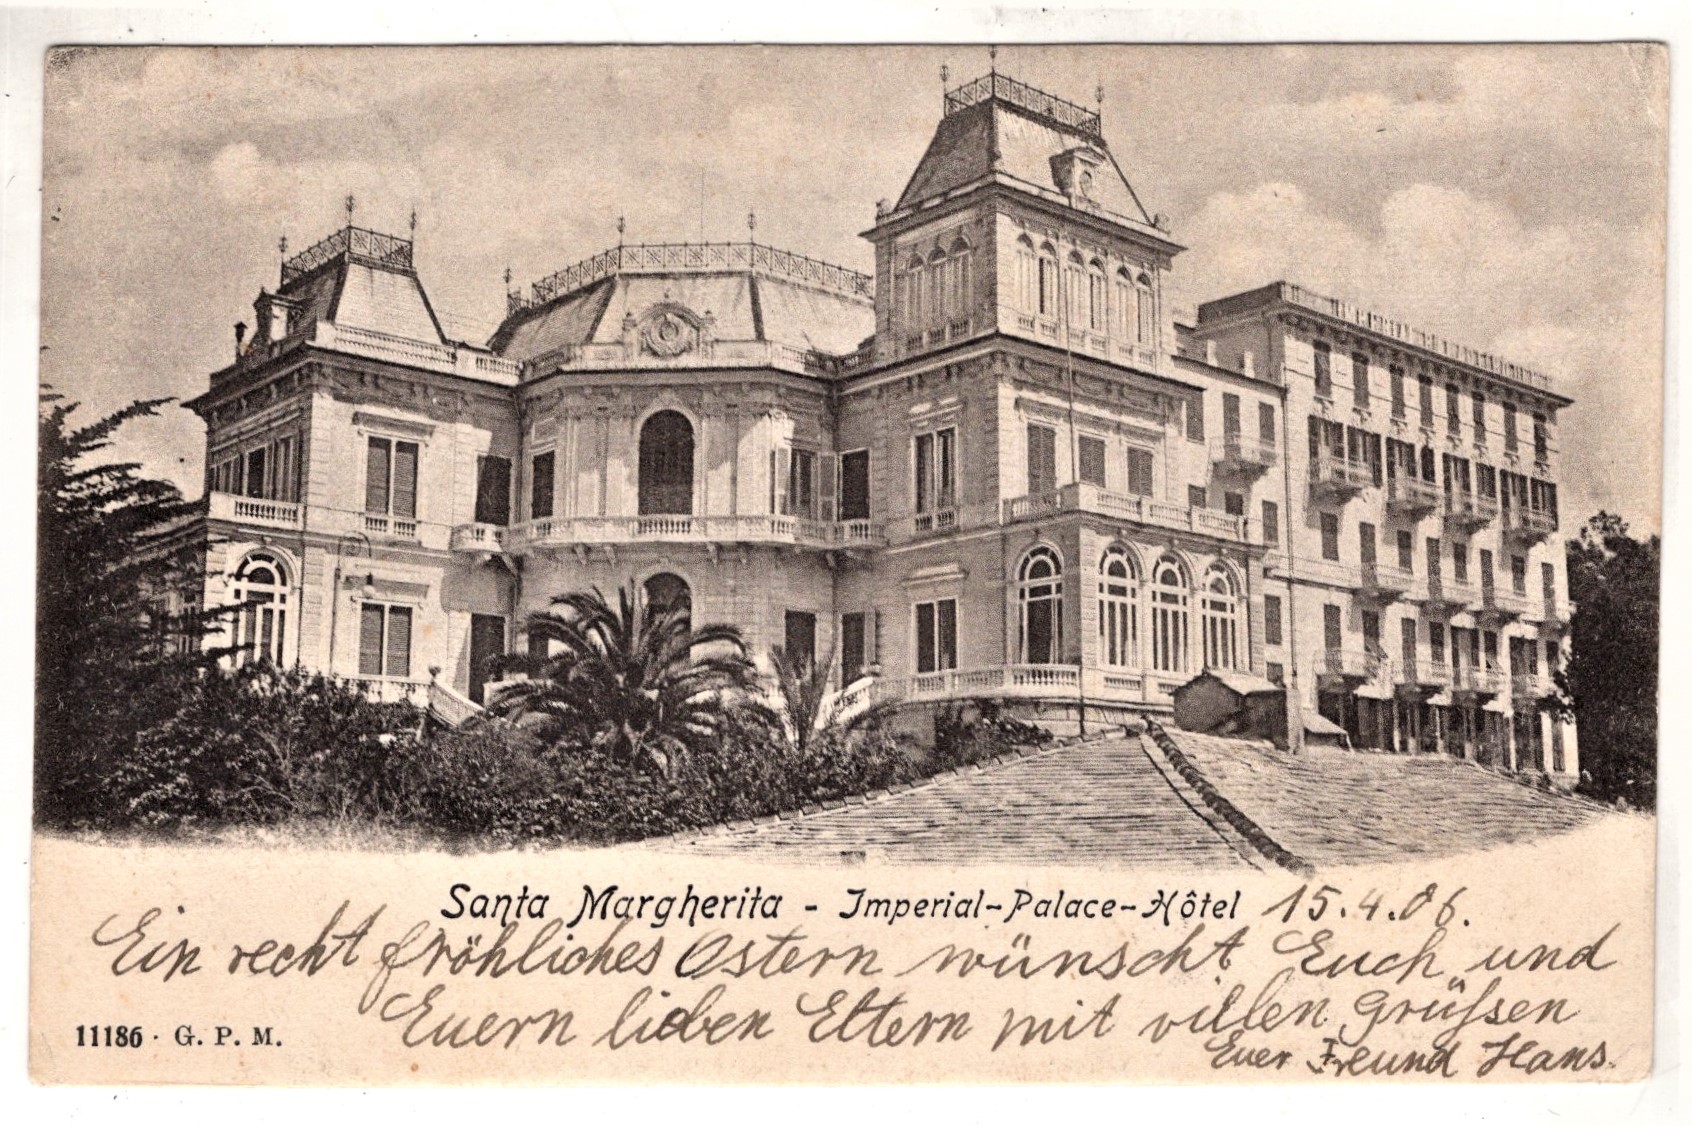 Santa Margherita - Imperial-Palace-Hôtel 15.4.06.
Ein recht fröhliches Ostern wünscht Euch und
Euern lieben Eltern mit vielen Grüßen
11186 · G. P. M.
Euer Freund Hans.